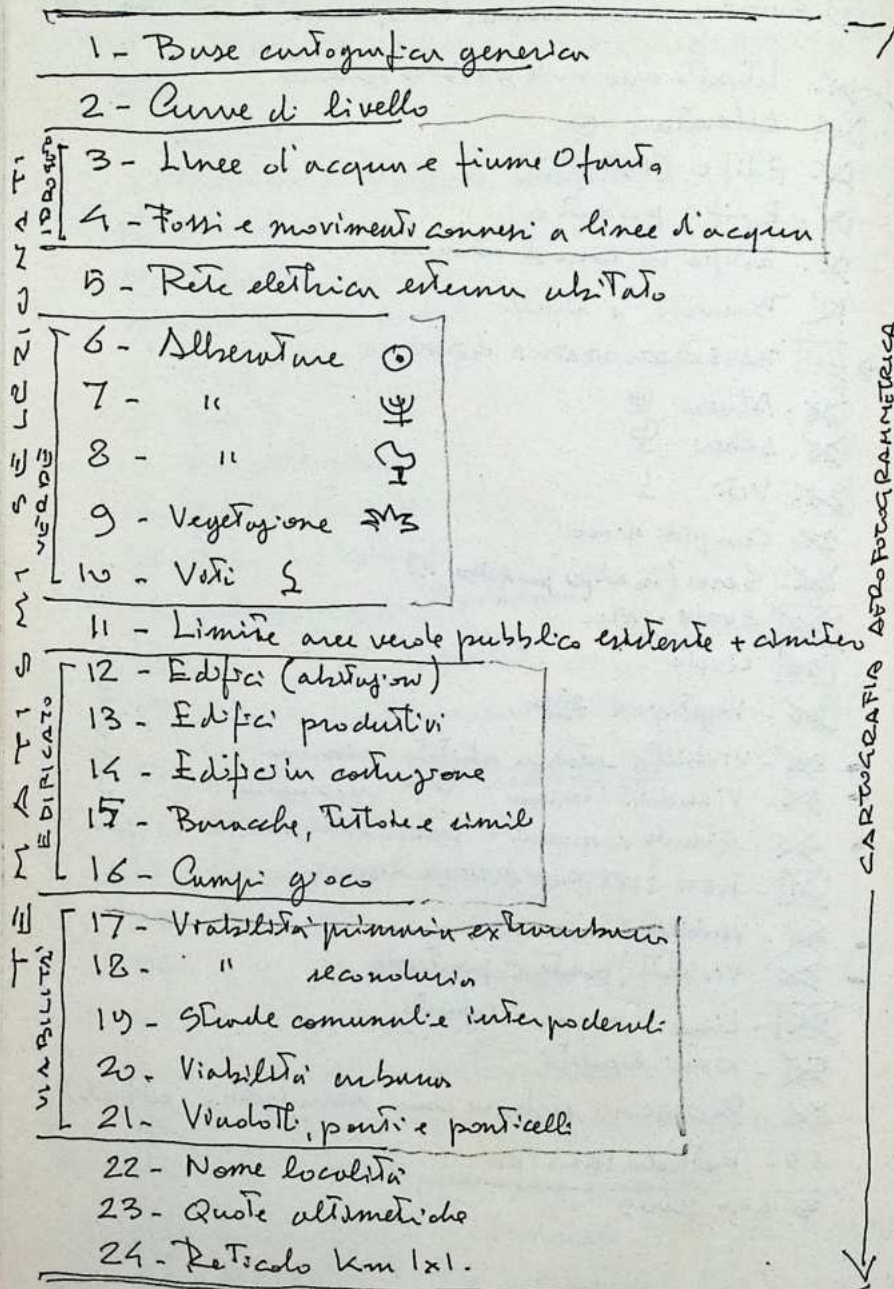 1 - Base cartografica generica
2 - Curve di livello
3 - Linee d'acqua e fiume Ofanto
4 - Fossi e movimenti connessi a linee d'acqua
5 - Rete elettrica esterna abitato
6 - Alberature
7 - "
8 - "
9 - Vegetazione
10 - Viti
11 - Limite aree verde pubblico esistente + cimitero
12 - Edifici (abitazioni)
13 - Edifici produttivi
14 - Edifici in costruzione
15 - Baracche, Tettoie e simili
16 - Campi gioco
17 - Viabilità primaria extraurbana
18 - " secondaria
19 - Strade comunali e interpoderali
20 - Viabilità urbana
21 - Viadotti, ponti e ponticelli
22 - Nome località
23 - Quote altimetriche
24 - Reticolo Km 1x1.
TEMATISMI SELEZIONATI
VERDE
EDIFICATO
VIABILITÀ
CARTOGRAFIA AEROFOTOGRAMMETRICA